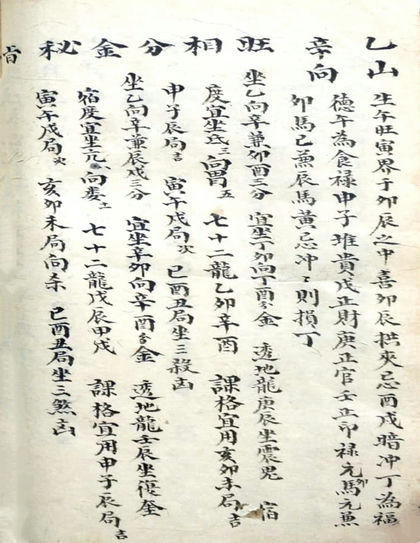 旺相分金秘旨
乙山
辛向
生午旺寅界于卯辰之中喜卯辰拱夹忌酉戌暗冲丁為福
德午為食禄申子堆貴戊正財庚正官壬正印禄元卯馬元兼
卯馬巳兼辰馬黄忌冲〻則損丁
坐乙向辛兼卯酉三分宜坐丁卯向丁酉分金透地龍庚辰坐震兑宿
度宜坐氐三向胃五七十二龍乙卯辛酉課格宜用亥卯未局吉
申子辰局吉寅午戌局次巳酉丑局坐三殺凶
坐乙向辛兼辰戌三分宜坐辛卯向辛酉分金透地龍壬辰坐復奎
宿度宜坐亢向娄七十二龍戊辰甲戌課格宜用申子辰局吉
寅午戌局次亥卯未局向杀巳酉丑局坐三煞凶